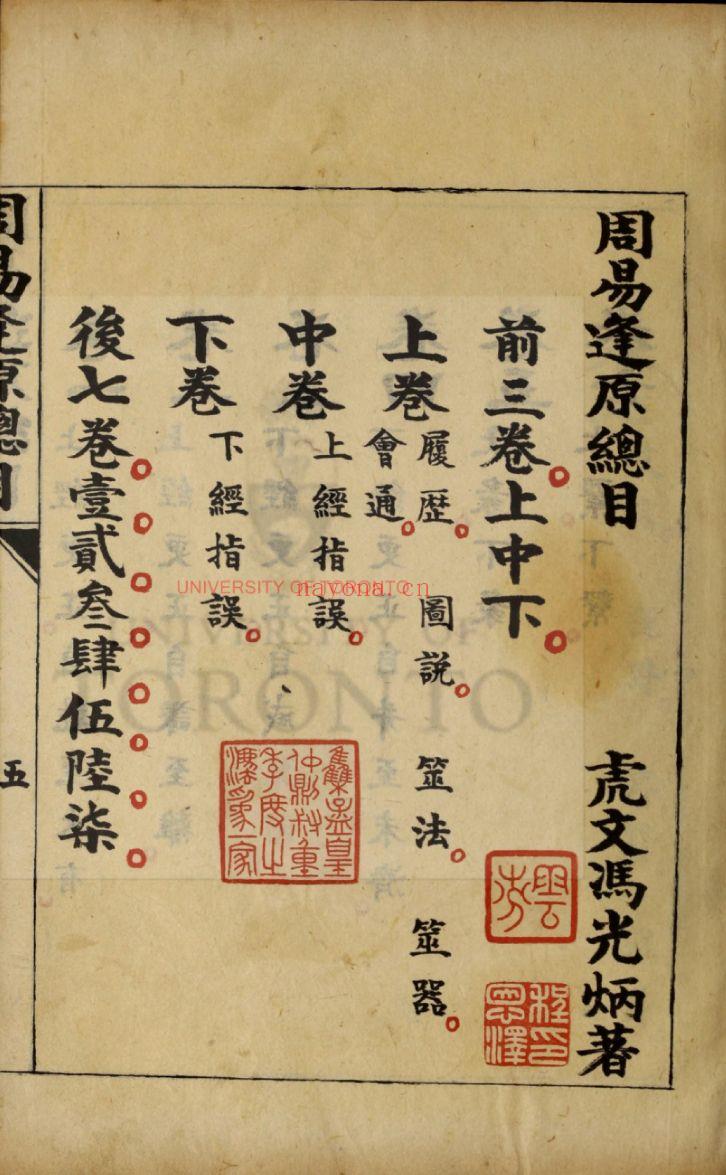 周易逢原總目
虎文馮光炳著
前三卷上中下
上卷
履歷 圖説 筮法 筮器
會通
中卷
上經指誤
下卷
下經指誤
後七卷壹貳叄肆伍陸柒
周易逢原總目
五
UNIVERSITY OF TORONTO
navona.cn
UNIVERSITY OF
TORONTO